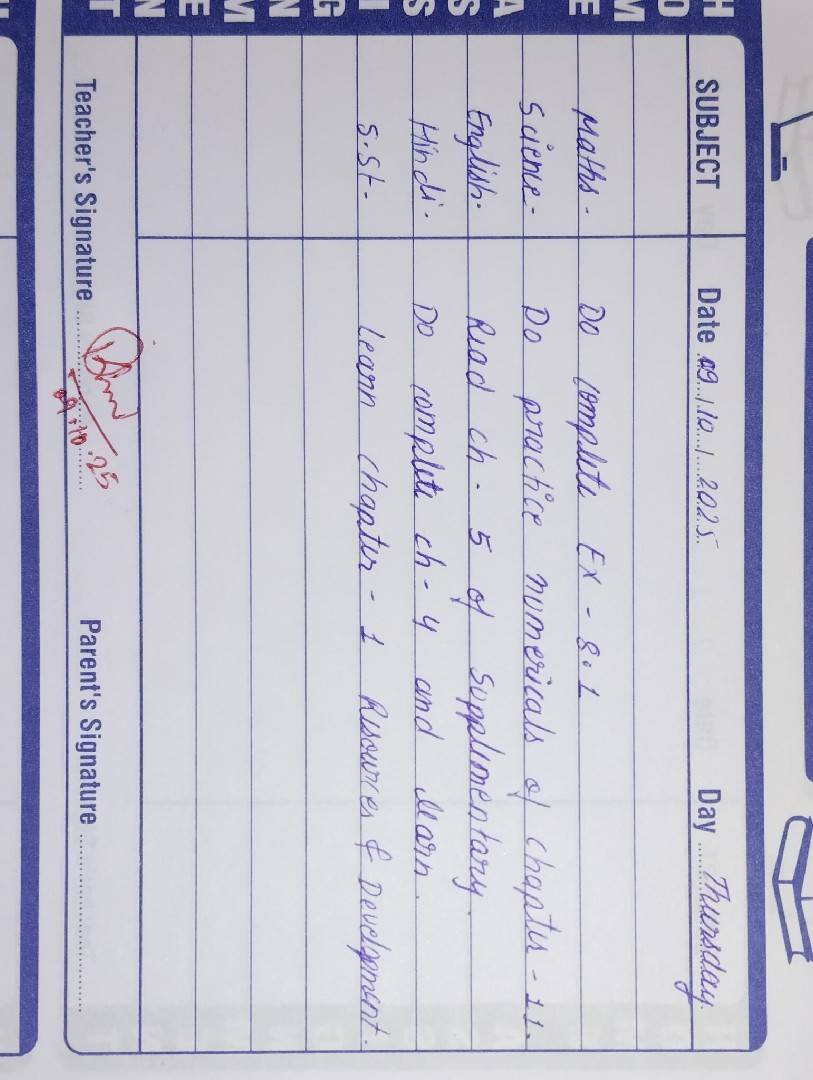 HOME ASSIGNMENT
SUBJECT Date 09 / 10 / 2025 Day Thursday
Maths - Do complete Ex - 8.1
Science - Do practice numericals of chapter - 11.
English - Read ch - 5 of supplimentary.
Hindi - Do complete ch - 4 and learn.
S.St - Learn chapter - 1 Resources & Development.
Teacher's Signature 09.10.25 Parent's Signature